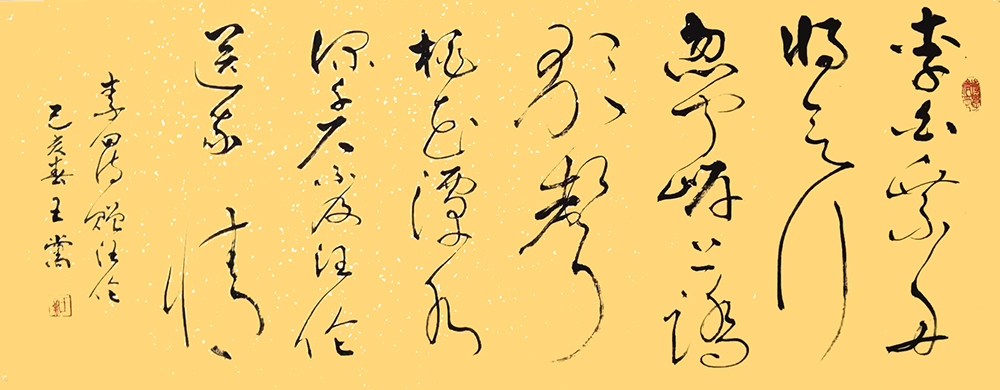 李白乘舟
将欲行
忽闻岸上踏
歌聲
桃花潭水
深千尺不及汪伦
送我情
李白诗赠汪伦
己亥春王